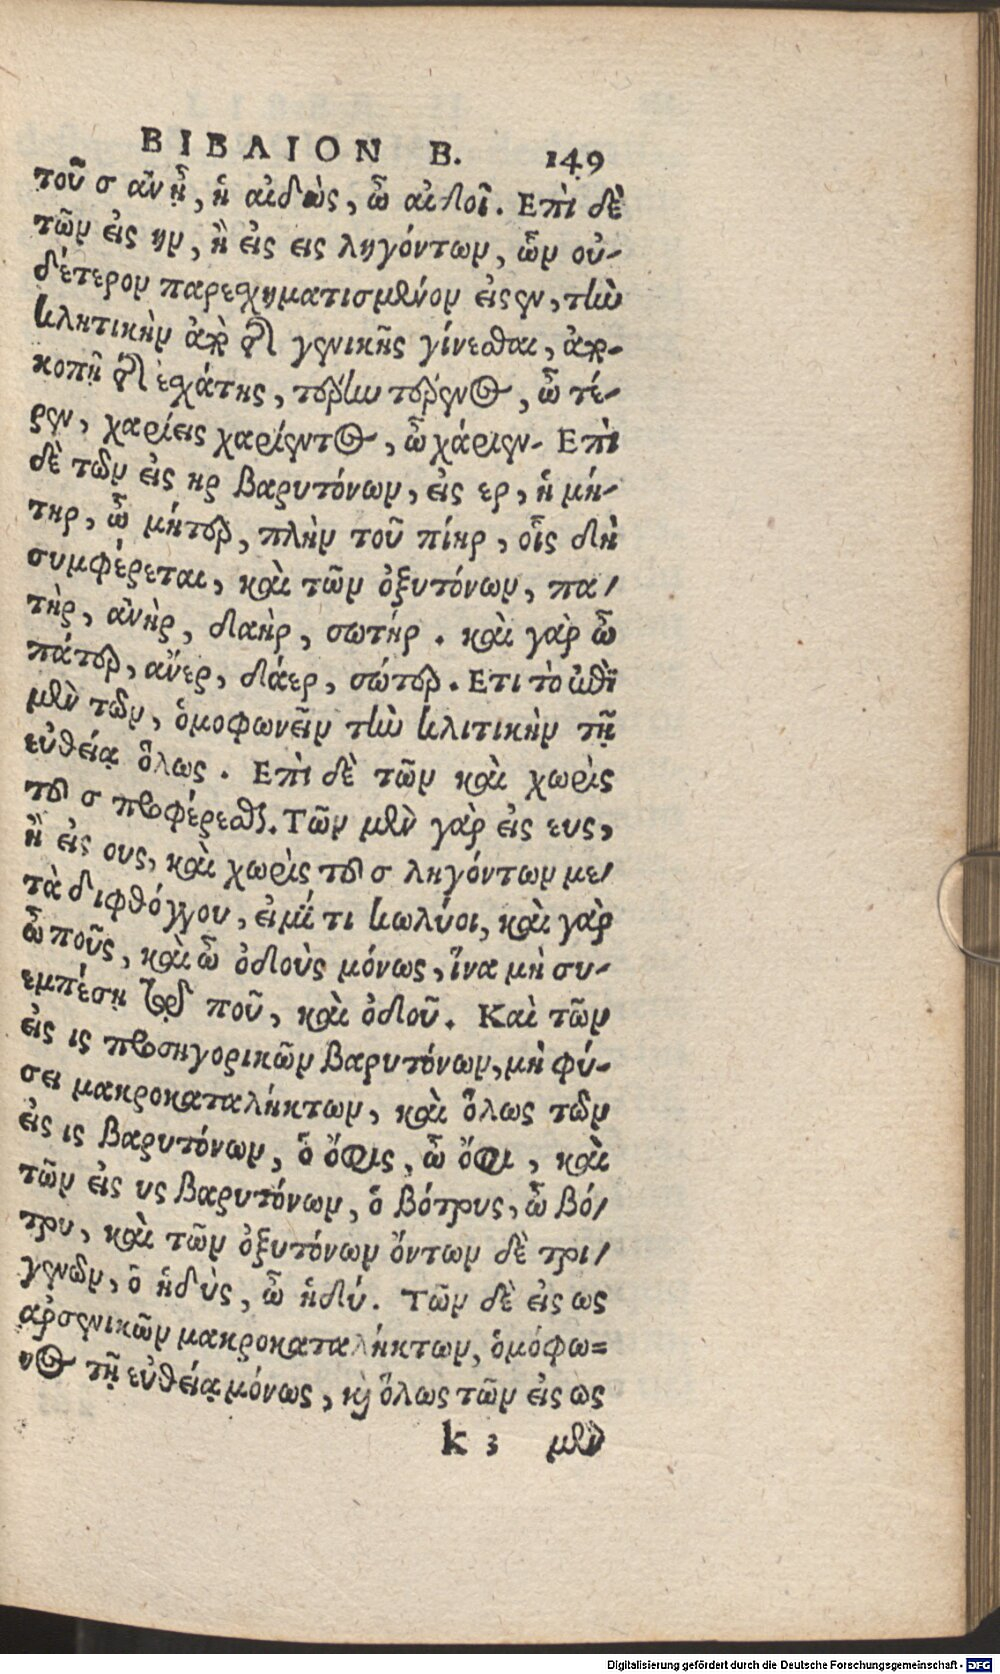 ΒΙΒΛΙΟΝ Β. 149
τοῦ σ ἂν ᾖ, ἡ αἰδὼς, ὦ αἰδοῖ. Επὶ δὲ
τῶν εἰς ην, ἢ εἰς εις ληγόντων, ὧν οὐ-
δέτερον παρεσχηματισμένον εἰς εν, τὴν
κλητικὴν ἀπὸ τῆς γενικῆς γίνεσθαι, ἀπο-
κοπῇ τῆς ἐσχάτης, τέρην τέρενος, ὦ τέ-
ρεν, χαρίεις χαρίεντος, ὦ χάριεν. Επὶ
δὲ τῶν εἰς ηρ βαρυτόνων, εἰς ερ, ἡ μή-
τηρ, ὦ μήτερ, πλὴν τοῦ πίηρ, οἷς δὴ
συμφέρεται, καὶ τῶν ὀξυτόνων, πα-
τὴρ, ἀνὴρ, δαὴρ, σωτήρ. καὶ γὰρ ὦ
πάτερ, ἄνερ, δάερ, σώτερ. Ετι τὸ ἐπὶ
μὲν τῶν, ὁμοφωνεῖν τὴν κλιτικὴν τῇ
εὐθείᾳ ὅλως. Επὶ δὲ τῶν καὶ χωρὶς
τοῦ σ προφέρεσθαι. Τῶν μὲν γὰρ εἰς ευς,
ἢ εἰς ους, καὶ χωρὶς τοῦ σ ληγόντων με-
τὰ διφθόγγου, εἰ μή τι κωλύοι, καὶ γὰρ
ὦ ποῦς, καὶ ὦ ὀδοὺς μόνως, ἵνα μὴ συ-
εμπέσῃ τῷ ποῦ, καὶ ὀδοῦ. Καὶ τῶν
εἰς ις προσηγορικῶν βαρυτόνων, μὴ φύ-
σει μακροκαταλήκτων, καὶ ὅλως τῶν
εἰς ις βαρυτόνων, ὁ ὄφις, ὦ ὄφι, καὶ
τῶν εἰς υς βαρυτόνων, ὁ βότρυς, ὦ βό-
τρυ, καὶ τῶν ὀξυτόνων ὄντων δὲ τρι-
γενῶν, ὁ ἡδὺς, ὦ ἡδύ. Τῶν δὲ εἰς ως
ἀρσενικῶν μακροκαταλήκτων, ὁμόφω=
νος τῇ εὐθείᾳ μόνως, καὶ ὅλως τῶν εἰς ως
k 3 μὲν
Digitalisierung gefördert durch die Deutsche Forschungsgemeinschaft - DFG